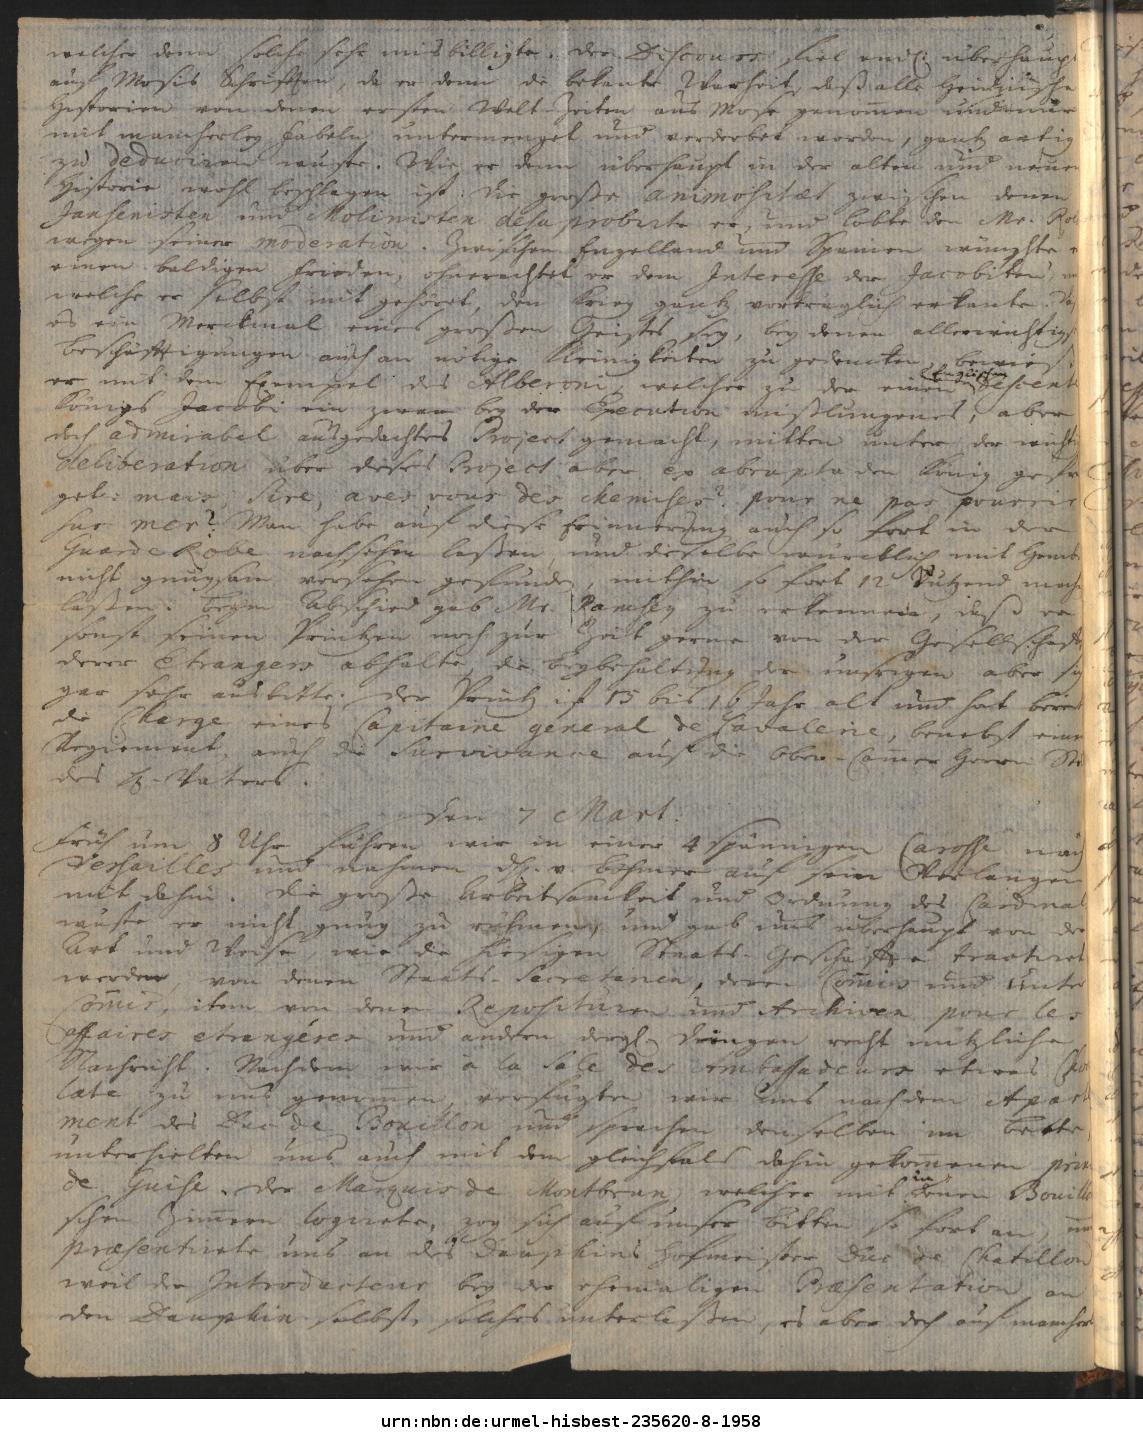 welcher denn solche sehr misbilligte. Der Discours fiel endl. überhaupt
auf Mosis Schrifften, da er denn die bekante Warheit, daß alle Heidnische
Historien von denen ersten Welt-Zeiten aus Mose genom̅en und nur
mit mancherley Fabeln untermenget und verderbet worden, gantz artig
zu deduciren wuste. Wie er denn überhaupt in der alten und neuen
Historie wohl beschlagen ist. Die große animositæt zwischen denen
Jansenisten und Molinisten desaprobirte er, und lobte den Mr.
wegen seiner moderation. Zwischen Engelland und Spanien wünschte
einen baldigen Frieden, ohnerachtet er dem Interesse der Jacobiten,
welche er selbst mit gehöret, den Krieg gantz vorträglich erkante.
es ein Merckmal eines großen Geistes sey, bey denen allerwichtigst
Beschäfftigungen auch an nötige Kleinigkeiten zu gedencken, bewieß
er mit dem Exempel des Alberoni, welcher zu der einen Englischen Descente
Königs Jacobi ein zwar bey der Execution mißlungenes, aber
doch admirabel ausgedachtes Project gemacht, mitten unter der
deliberation über dieses Project aber ex abrupto den König
get: mais, Sire, aves vous des chemises? pour ne pas pourrir
sur mer? Man habe auf diese Erinnerung auch so fort in der
Guarde Robe nachsehen laßen, und dieselbe würcklich mit Hemb
nicht gnugsam versehen gefunden, mithin so fort 12 Dutzend mach
laßen. Beym Abschied gab Mr. Ramsey zu erkennen, daß er
sonst seinen Printzen noch zur Zeit gerne von der Gesellschaft
derer Etrangers abhalte, die Beybehaltung der unsrigen aber
gar sehr ausbitte. Der Printz ist 15 bis 16 Jahr alt und hat bereit
die Charge eines Capitaine general de Cavalerie, benebst einem
Regiement, auch die Survivance auf die Ober-Cam̅er Herrn
des H. Vaters.
den 7 Mart.
Früh um 8 Uhr fuhren wir in einer 4 spännigen Carosse nach
Versailles und nahmen v. Böhmer auf sein Verlangen
mit dahin. Die große Arbeitsamkeit und Ordnung des Cardinal
wuste er nicht gnug zu rühmen, und gab uns überhaupt von der
Art und Weise, wie die hiesigen Staats-Geschäffte tractiret
werden, von denen Staats-Secretarien, deren Com̅is und Unter
Com̅is, item von denen Reposituren und Archiven pour les
affaires etrangéres und andern dergl. Dingen recht nützliche
Nachricht. Nachdem wir à la Sale des Ambassadeurs etwas
late zu uns genom̅en, verfügten wir uns nach dem Apart
ment des Duc de Bouillon und sprachen denselben im Bette,
unterhielten uns auch mit dem gleichfals dahin gekom̅enen
de Guise. Der Marquis de Montbrun, welcher mit in denen Bouillo
schen Zim̅ern logirete, zog sich auf unser Bitten so fort an,
præsentirte uns an des Dauphins Hofmeister Duc de Chatillon
weil der Introducteur bey der ehemaligen Præsentation an
den Dauphin selbst, solches unterlaßen, es aber doch auf mancher